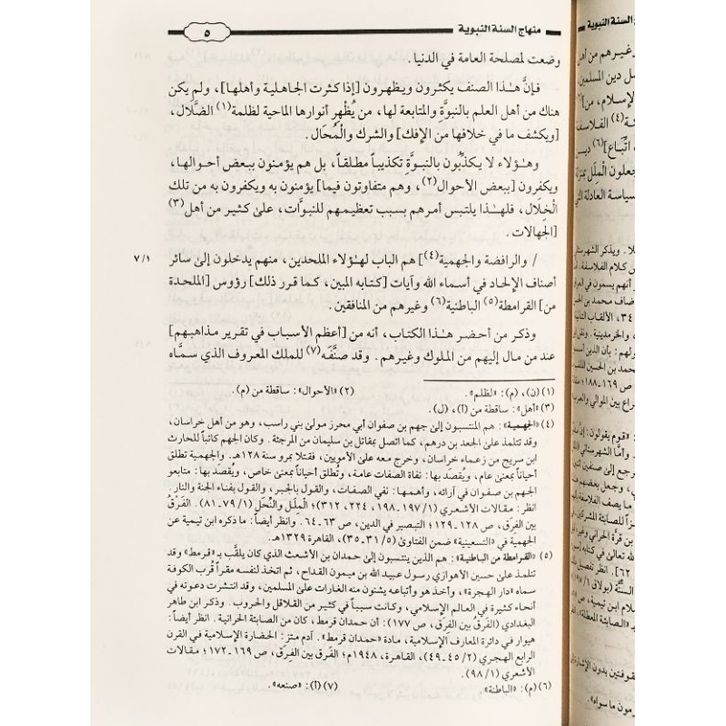 منهاج السنة النبوية
٥
وضعت لمصلحة العامة في الدنيا .
فإنَّ هٰذا الصنف يكثرون ويظهرون [إذا كثرت الجاهلية وأهلها]، ولم يكن
هناك من أهل العلم بالنبوَّةِ والمتابعة لها، من يُظْهِر أنوارها الماحية لظلمة(١) الضَّلال،
[ويكشف ما في خلافها من الإفك] والشرك والْمُحَال.
وهٰؤلاء لا يكذِّبون بالنبوَّة تكذيباً مطلقاً، بل هم يؤمنون ببعض أحوالها،
ويكفرون [ببعض الأحوال(٢)، وهم متفاوتون فيما] يؤمنون به ويكفرون به من تلك
الْخِلال، فلهٰذا يلتبس أمرهم بسبب تعظيمهم للنبوَّات، علىٰ كثير من أهل(٣)
[الجهالات .
/ والرافضة والجهمية(٤)] هم الباب لهٰؤلاء الملحدين، منهم يدخلون إلىٰ سائر
٧/١
أصناف الإلحاد في أسماء الله وآيات [كتابه المبين، كما قرر ذلك] رؤوس [الملحدة
من] القرامطة(٥) الباطنية(٦) وغيرهم من المنافقين.
وذكر من أحضر هٰذا الكتاب، أنه من [أعظم الأسباب في تقرير مذاهبهم]
عند من مال إليهم من الملوك وغيرهم . وقد صنَّفَه(٧) للملك المعروف الذي سمَّاه
(١) (ن)، (م): «لظلم».
(٢) «الأحوال»: ساقطة من (م).
(٣) «أهل»: ساقطة من (أ)، (ل).
(٤) «الجهمية»: هم المنتسبون إلىٰ جهم بن صفوان أبي محرز مولىٰ بني راسب، وهو من أهل خراسان،
وقد تتلمذ علىٰ الجعد بن درهم، كما اتصل بمقاتل بن سليمان من المرجئة . وكان الجهم كاتباً للحارث
ابن سريج من زعماء خراسان، وخرج معه علىٰ الأمويين، فقتلا بمرو سنة ١٢٨هـ. والجهمية تطلق
أحياناً بمعنىٰ عام، ويُقصد بها: نفاة الصفات عامة، وتُطلق أحياناً بمعنىٰ خاص، ويُقصد بها: متابعو
الجهم بن صفوان في آرائه، وأهمها: نفي الصفات، والقول بالجبر، والقول بفناء الجنة والنار .
انظر: مقالات الأشعري (١/١٩٧-١٩٨، ٢٢٤، ٣١٢)؛ الْمِلَل والنِّحَل (١/٧٩-٨١). الفَرْقُ
بين الفِرَق، ص ١٢٨-١٢٩؛ التبصير في الدين، ص ٦٣-٦٤. وانظر أيضاً: ما ذكره ابن تيمية عن
الجهمية في «التسعينية» ضمن الفتاوىٰ (٥/٣١-٣٥)، القاهرة ١٣٢٩هـ.
(٥) «القرامطة من الباطنية»: هم الذين ينتسبون إلىٰ حمدان بن الأشعث الذي كان يلقَّب بـ «قرمط» وقد
تتلمذ علىٰ حسين الأهوازي رسول عبيد الله بن ميمون القداح، ثم اتخذ لنفسه مقراً قُرب الكوفة
سماه «دار الهجرة»، وأخذ هو وأتباعه يشنون منه الغارات علىٰ المسلمين، وقد انتشرت دعوته في
أنحاء كثيرة في العالم الإسلامي، وكانت سبباً في كثير من القلاقل والحروب . وذكر ابن طاهر
البغدادي (الفَرْق بين الفِرَق، ص ١٧٧): أن حمدان قرمط، كان من الصابئة الحرانية . انظر أيضاً:
هيوار في دائرة المعارف الإسلامية، مادة «حمدان قرمط» . آدم متز: الحضارة الإسلامية في القرن
الرابع الهجري (٢/٤٥-٤٩)، القاهرة، ١٩٤٨م؛ الفَرْق بين الفِرَق، ص ١٦٩-١٧٢؛ مقالات
الأشعري (١/٩٨).
(٦) (م): «الباطنة».
(٧) (أ): «صنعه».